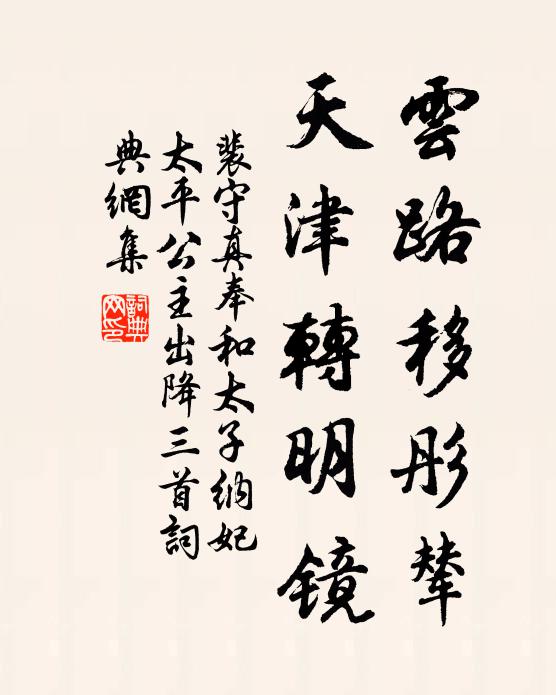 雲路移彤輦
天津轉明鏡
裴守真奉和太子納妃
太平公主出降三首詞
典網集
詞典网印